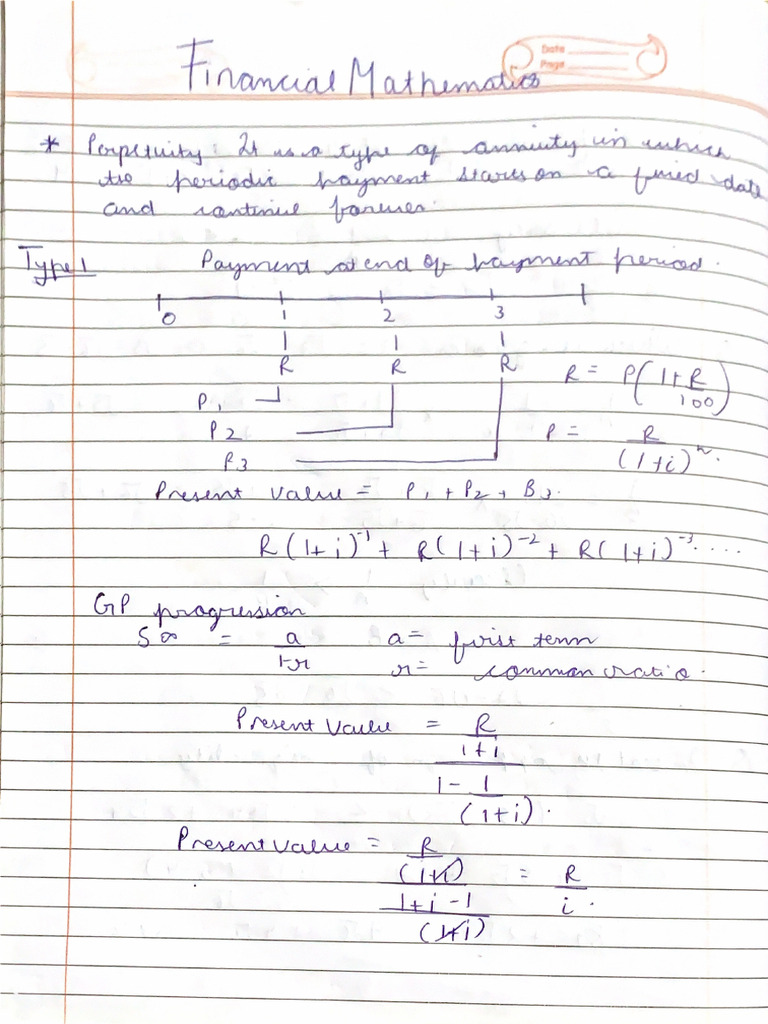 Date
Page
Financial Mathematics
* Perpetuity: It is a type of annuity in which
the periodic payment starts on a fixed date
and continue forever.
Type 1 Payment at end of payment period.
0 1 2 3
R R R
R = P(1+R/100)
P1
P2
P3
P = R/(1+i)^n.
Present value = P1 + P2 + B3.
R(1+i)^-1 + R(1+i)^-2 + R(1+i)^-3 ....
GP progression
S∞ = a/1-r a = first term
r = common ratio.
Present Value = R/1+i / 1 - 1/(1+i).
Present value = R/(1+i) / 1+i-1/(1+i) = R/i.